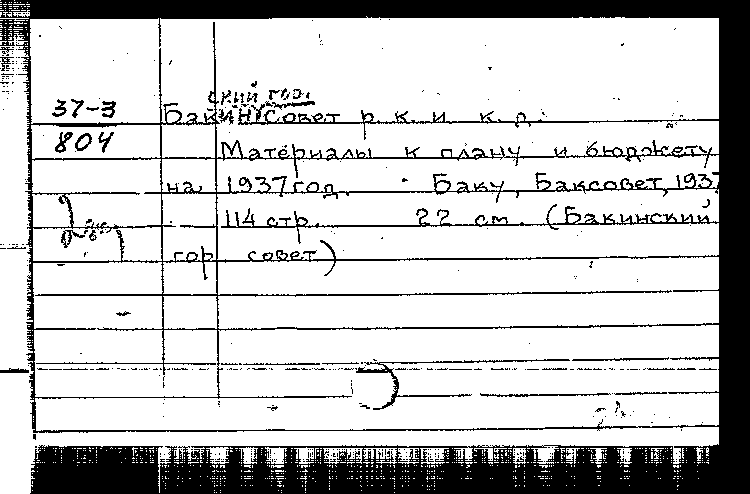 ский гор.
37-3 БакинСовет р. к. и к. д.
804
Материалы к плану и бюджету
на 1937 год. Баку, Баксовет, 1937
114 стр. 22 см. (Бакинский
гор совет)